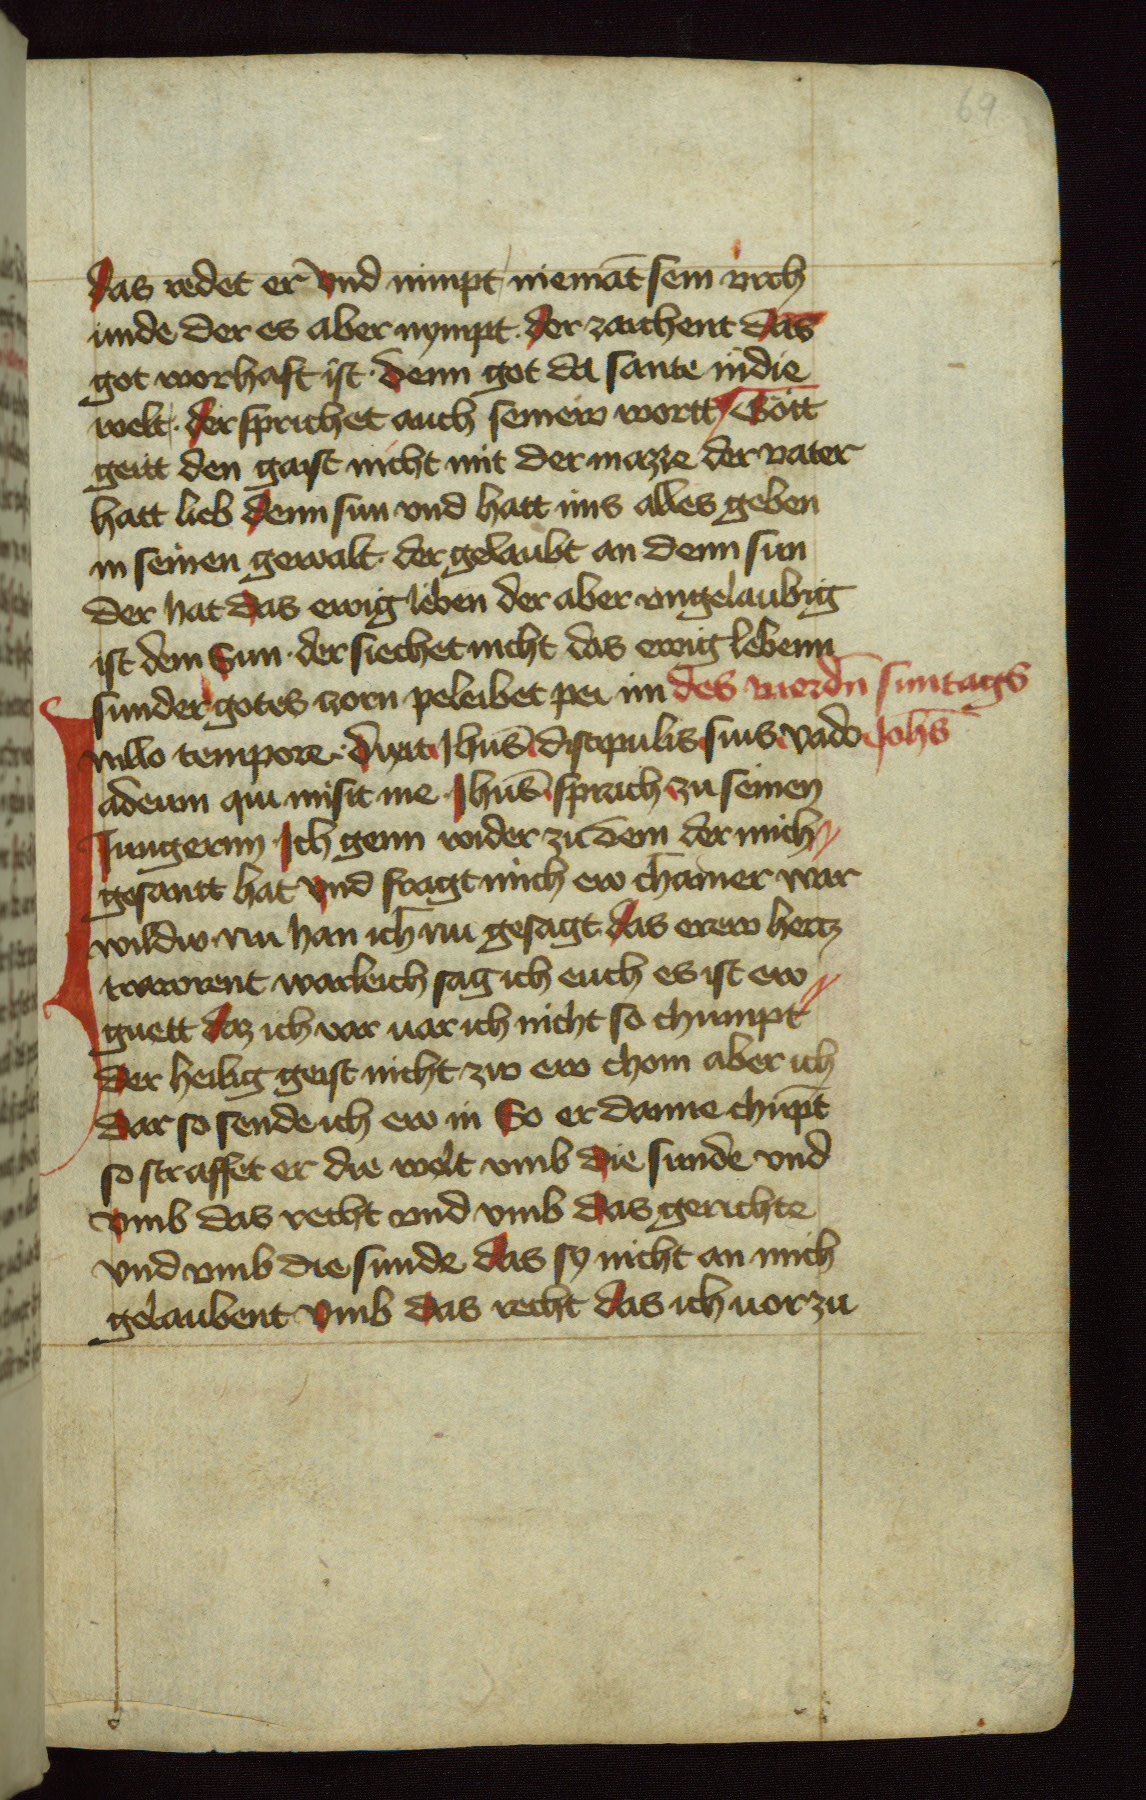 69
das redet er vnd nimpt niemāt sein vrch
unde der es aber nympt · der zaichent das
got worhaft ist · denn got da sante in die
welt · der sprichet auch seinew wortt Gott
geitt den gaist nicht mit der mazze der vater
hatt lieb denn sun vnd hatt ims alles geben
in seinen gewalt · der gelaubt an denn sun
der hat das ewig leben der aber vngelaubig
ist dem Sun · der siechet nicht das ewig lebenn
sunder gotes zorn peleibet pei im des vierdn̄ suntags
In illo tempore · dixit Jhūs discipulis suis vado Joh̄s
ad eum qui misit me · Jhūs sprach zu seinen
Jungernn Ich genn wider zu dem der mich
gesantt hat vnd fragt mich ew chainer war
wildw · nu han ich nu gesagt · das erew hertz
trawrent warleich sag ich euch es ist ew
guett daz ich var uar ich nicht so chumpt
der heilig geist nicht zw ew chom aber ich
dar so sende ich ew in So er danne chūpt
so straffet er die welt vmb die sunde vnd
vmb das recht vnd vmb das gerichte
vnd vmb die sunde das sy nicht an mich
gelaubent vmb das recht das ich uor zu